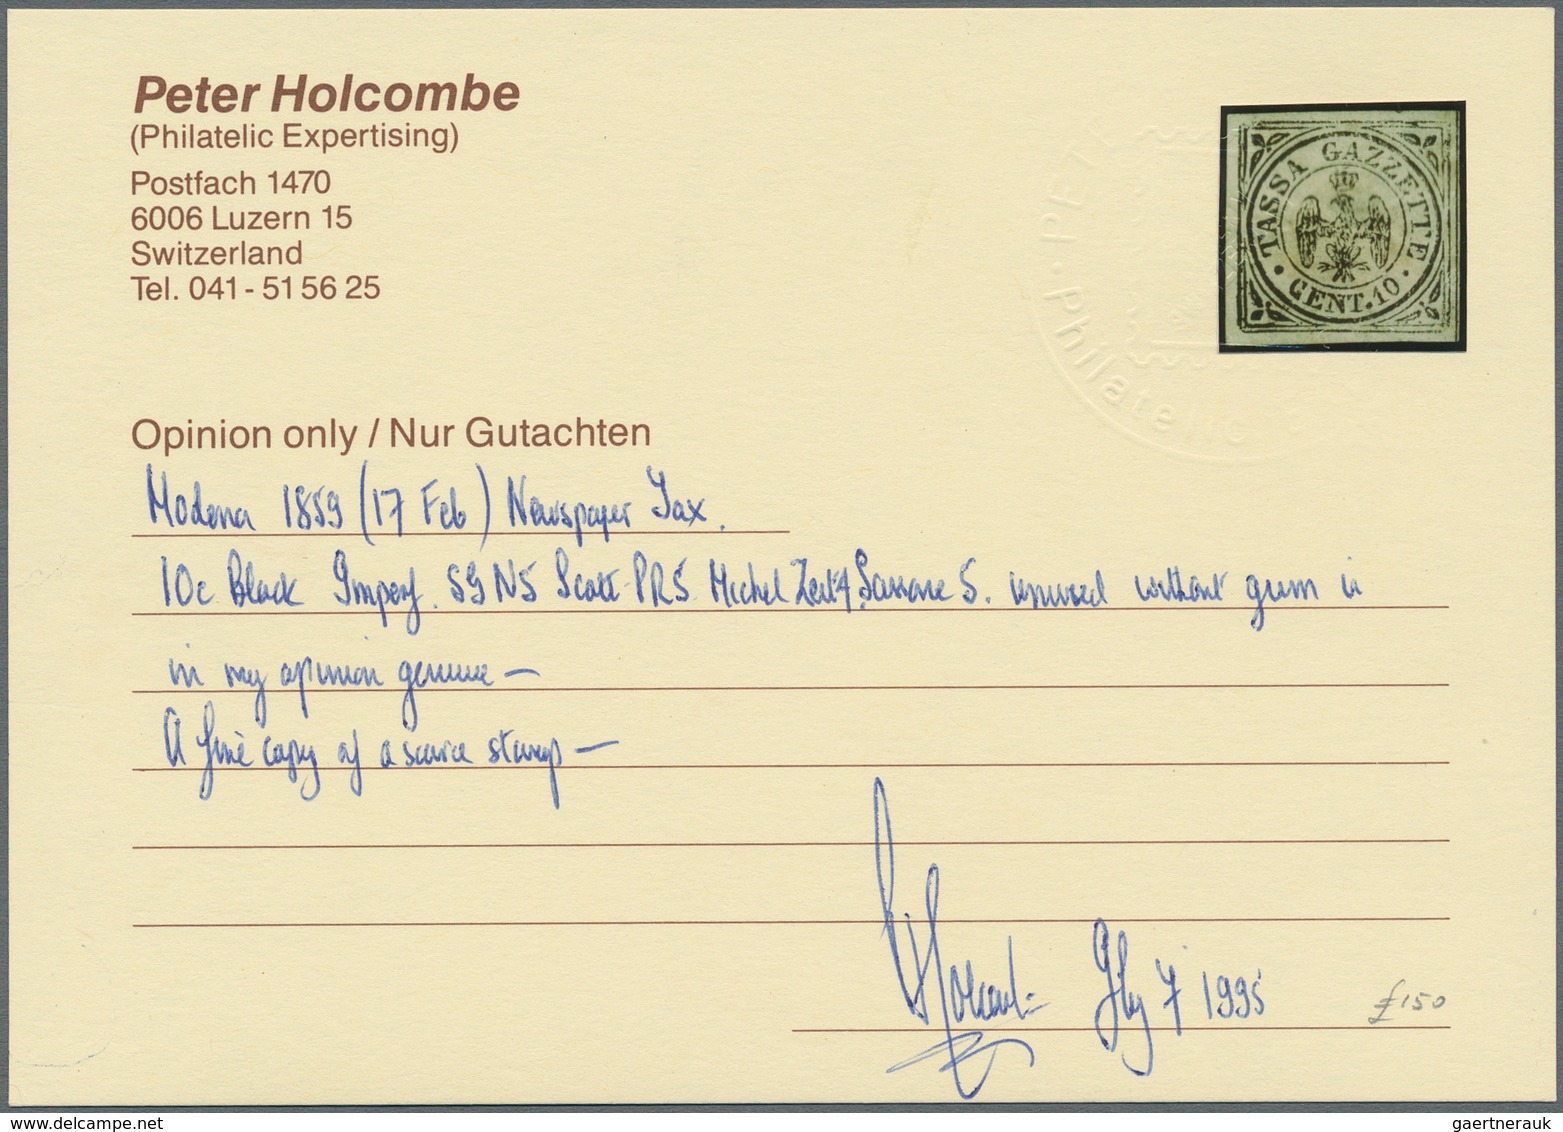 Peter Holcombe
(Philatelic Expertising)
Postfach 1470
6006 Luzern 15
Switzerland
Tel. 041 - 51 56 25
• TASSA GAZZETTE •
CENT. 10
PET
• Philatelic
Opinion only / Nur Gutachten
Modena 1859 (17 Feb) Newspaper Tax.
10c Black Imperf. SG N5 Scott PR5 Michel Zeit 4, Sassone 5. unused without gum is
in my opinion genuine —
A fine copy of a scarce stamp —
7 1995
£150
gaertnerauk